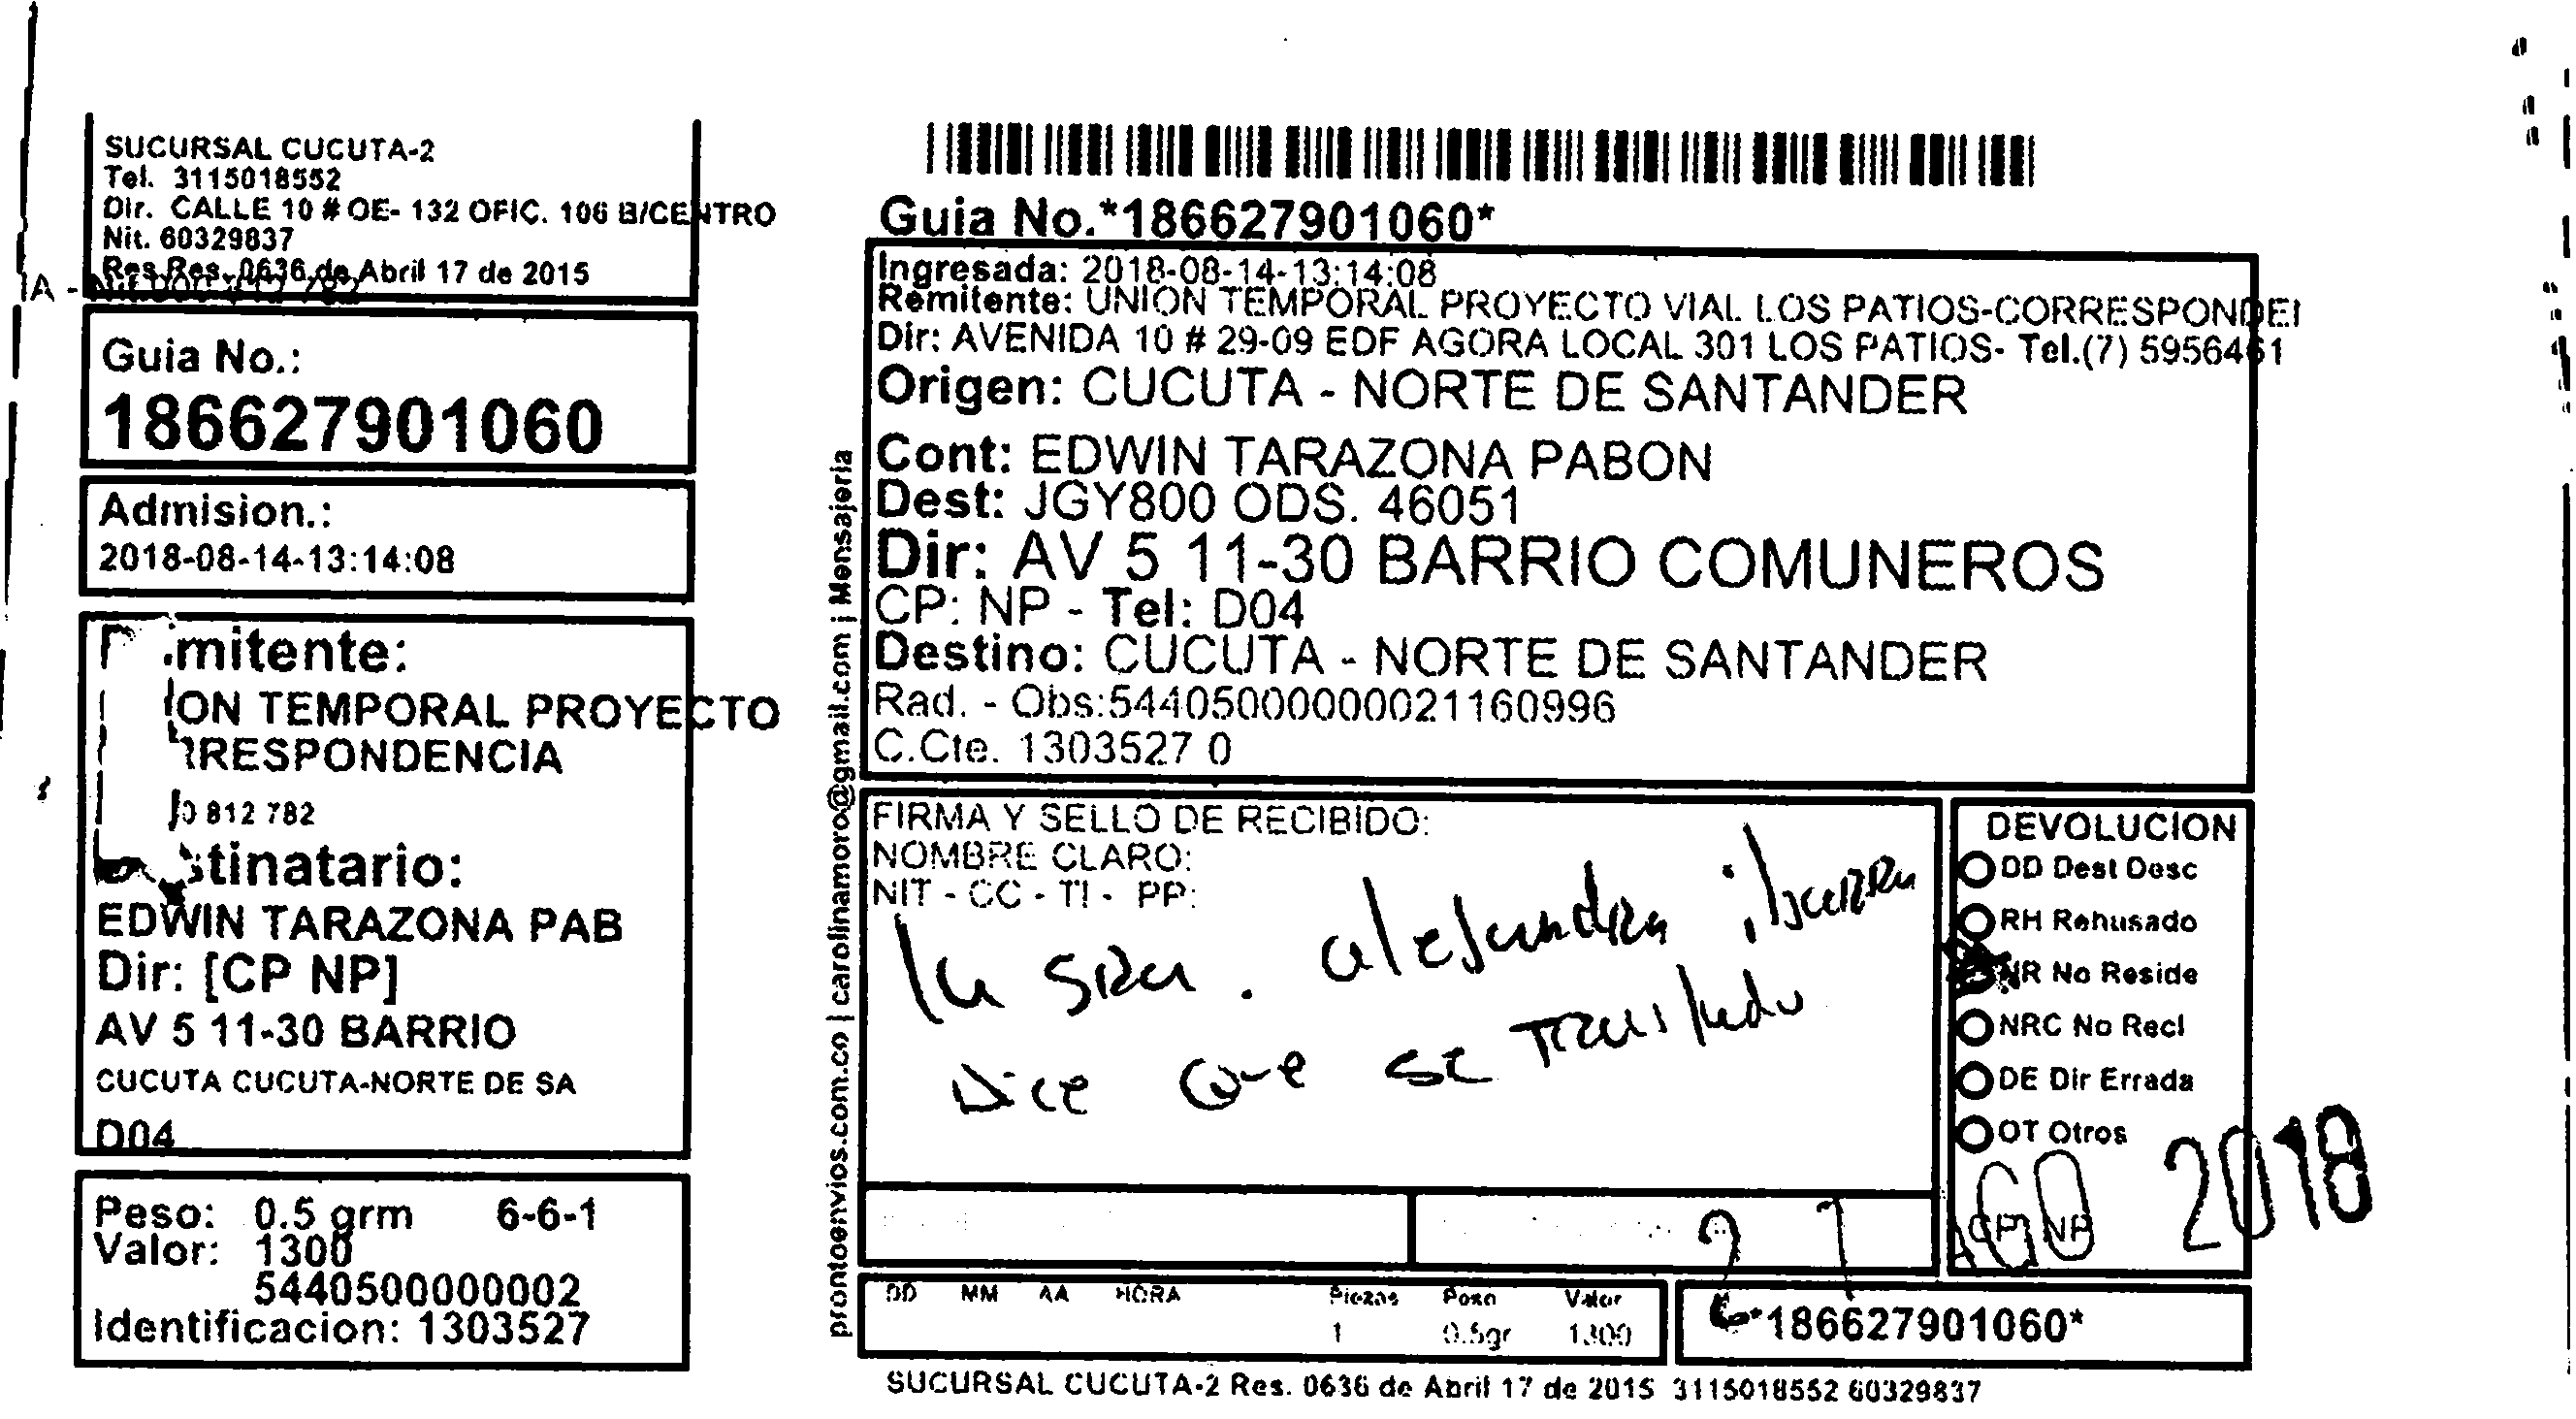 SUCURSAL CUCUTA-2
Tel. 3115018552
Dir. CALLE 10 # OE- 132 OFIC. 106 B/CENTRO
Nit. 60329837
Res Res. 0636 de Abril 17 de 2015
Guia No.:
186627901060
Admision.:
2018-08-14-13:14:08
mitente:
ION TEMPORAL PROYECTO
RRESPONDENCIA
0 812 782
stinatario:
EDWIN TARAZONA PAB
Dir: [CP NP]
AV 5 11-30 BARRIO
CUCUTA CUCUTA-NORTE DE SA
D04
Peso: 0.5 grm 6-6-1
Valor: 1300
5440500000002
Identificacion: 1303527
prontoenvios.com.co | carolinamoro@gmail.com | Mensajeria
Guia No.*186627901060*
Ingresada: 2018-08-14-13:14:08
Remitente: UNION TEMPORAL PROYECTO VIAL LOS PATIOS-CORRESPONDEI
Dir: AVENIDA 10 # 29-09 EDF AGORA LOCAL 301 LOS PATIOS- Tel.(7) 5956461
Origen: CUCUTA - NORTE DE SANTANDER
Cont: EDWIN TARAZONA PABON
Dest: JGY800 ODS. 46051
Dir: AV 5 11-30 BARRIO COMUNEROS
CP: NP - Tel: D04
Destino: CUCUTA - NORTE DE SANTANDER
Rad. - Obs:544050000000021160996
C.Cte. 1303527 0
FIRMA Y SELLO DE RECIBIDO:
NOMBRE CLARO:
NIT - CC - TI - PP:
la sra. alejandra ibarra
Dice que se traslado
DEVOLUCION
DD Dest Desc
RH Rehusado
NR No Reside
NRC No Recl
DE Dir Errada
OT Otros
CP: NP
AGO 2018
DD MM AA HORA Piezas Peso Valor
1 0.5gr 1300
*186627901060*
SUCURSAL CUCUTA-2 Res. 0636 de Abril 17 de 2015 3115018552 60329837